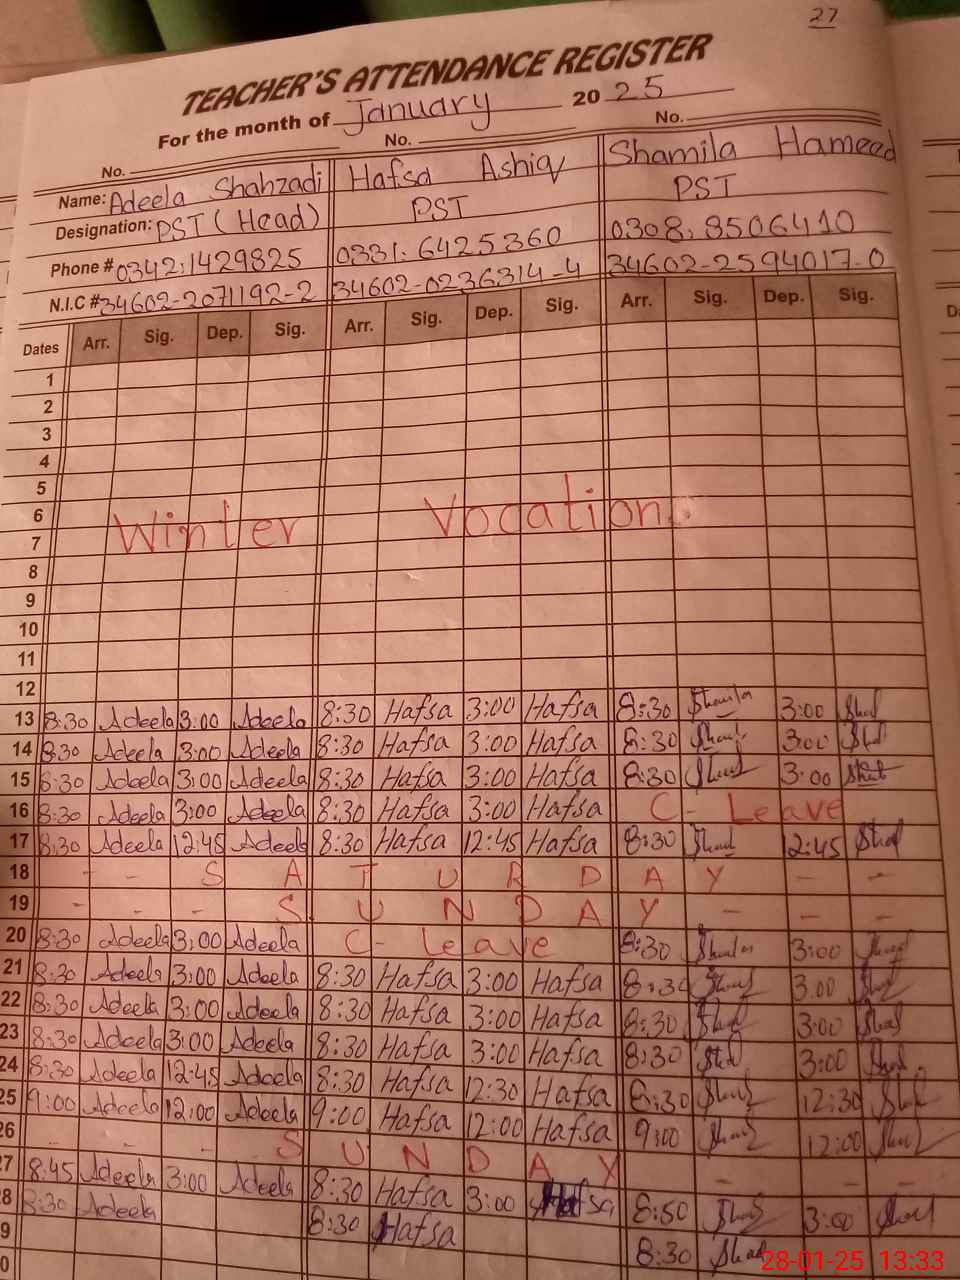 27
TEACHER'S ATTENDANCE REGISTER
For the month of January 2025
No. No. No.
Name: Adeela Shahzadi Hafsa Ashiq Shamila Hameed
Designation: PST (Head) PST PST
Phone # 0342:1429825 0331.6425360 0308.8506410
N.I.C # 34602-2071192-2 34602-0236314-4 34602-2594017-0
Dates Arr. Sig. Dep. Sig. Arr. Sig. Dep. Sig. Arr. Sig. Dep. Sig.
1
2
3
4
5
6
Winter Vocation
7
8
9
10
11
12
13 8:30 Adeela 3:00 Adeela 8:30 Hafsa 3:00 Hafsa 8:30 Shamila 3:00
14 8:30 Adeela 3:00 Adeela 8:30 Hafsa 3:00 Hafsa 8:30 3:00
15 8:30 Adeela 3:00 Adeela 8:30 Hafsa 3:00 Hafsa 8:30 3:00
16 8:30 Adeela 3:00 Adeela 8:30 Hafsa 3:00 Hafsa C- Leave
17 8:30 Adeela 12:45 Adeela 8:30 Hafsa 12:45 Hafsa 8:30 12:45
18 - - S A T U R D A Y - -
19 - - - S U N D A Y - - -
20 8:30 Adeela 3:00 Adeela C- Leave 8:30 3:00
21 8:30 Adeela 3:00 Adeela 8:30 Hafsa 3:00 Hafsa 8:30 3:00
22 8:30 Adeela 3:00 Adeela 8:30 Hafsa 3:00 Hafsa 8:30 3:00
23 8:30 Adeela 3:00 Adeela 8:30 Hafsa 3:00 Hafsa 8:30 3:00
24 8:30 Adeela 12:45 Adeela 8:30 Hafsa 12:30 Hafsa 8:30 12:30
25 9:00 Adeela 12:00 Adeela 9:00 Hafsa 12:00 Hafsa 9:00 12:00
26 - - - - S U N D A Y - - - -
27 8:45 Adeela 3:00 Adeela 8:30 Hafsa 3:00 Hafsa 8:50 3:00
28 8:30 Adeela 8:30 Hafsa 8:30
9
0
28-01-25 13:33